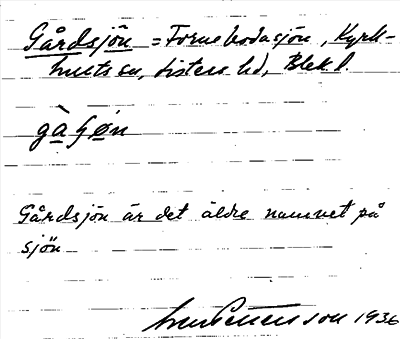 Gårdsjön = Fornebodasjön, Kyrk-
hults sn, Listers hd, Blek l.
gà ʃøn
Gårdsjön är det äldre namnet på
sjön
1936